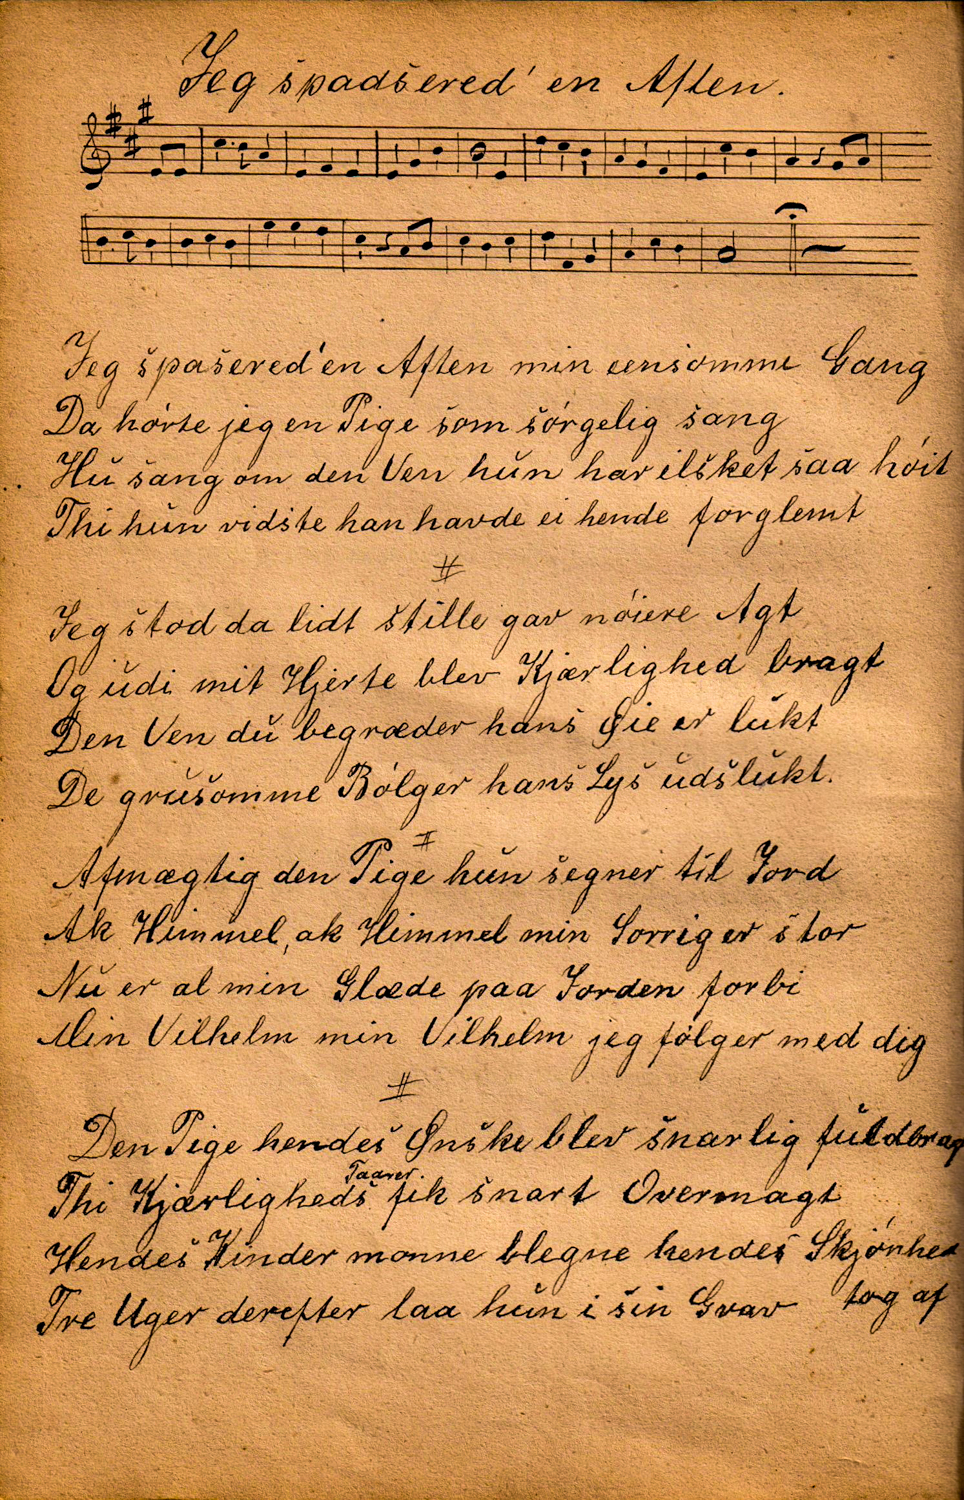 Jeg spadsered' en Aften.
Jeg spasered' en Aften min eensomme Gang
Da hórte jeg en Pige som sórgelig sang
Hu sang om den Ven hun har ilsket saa hóit
Thi hun vidste han havde ei hende forglemt
Jeg stod da lidt stille gav nóiere Agt
Og udi mit Hjerte blev Kjærlighed bragt
Den Ven du begræder hans Øie er lukt
De grusomme Bólger hans Lys udslukt.
Afmægtig den Pige hun segner til Jord
Ak Himmel, ak Himmel min Sorrig er stor
Nu er al min Glæde paa Jorden forbi
Min Vilhelm min Vilhelm jeg fólger med dig
Den Pige hendes Ønske blev snarlig fuldbrag
Thi Kjærligheds Taarer fik snart Overmagt
Hendes Kinder monne blegne hendes Skjónhed
tog af
Tre Uger derefter laa hun i sin Grav